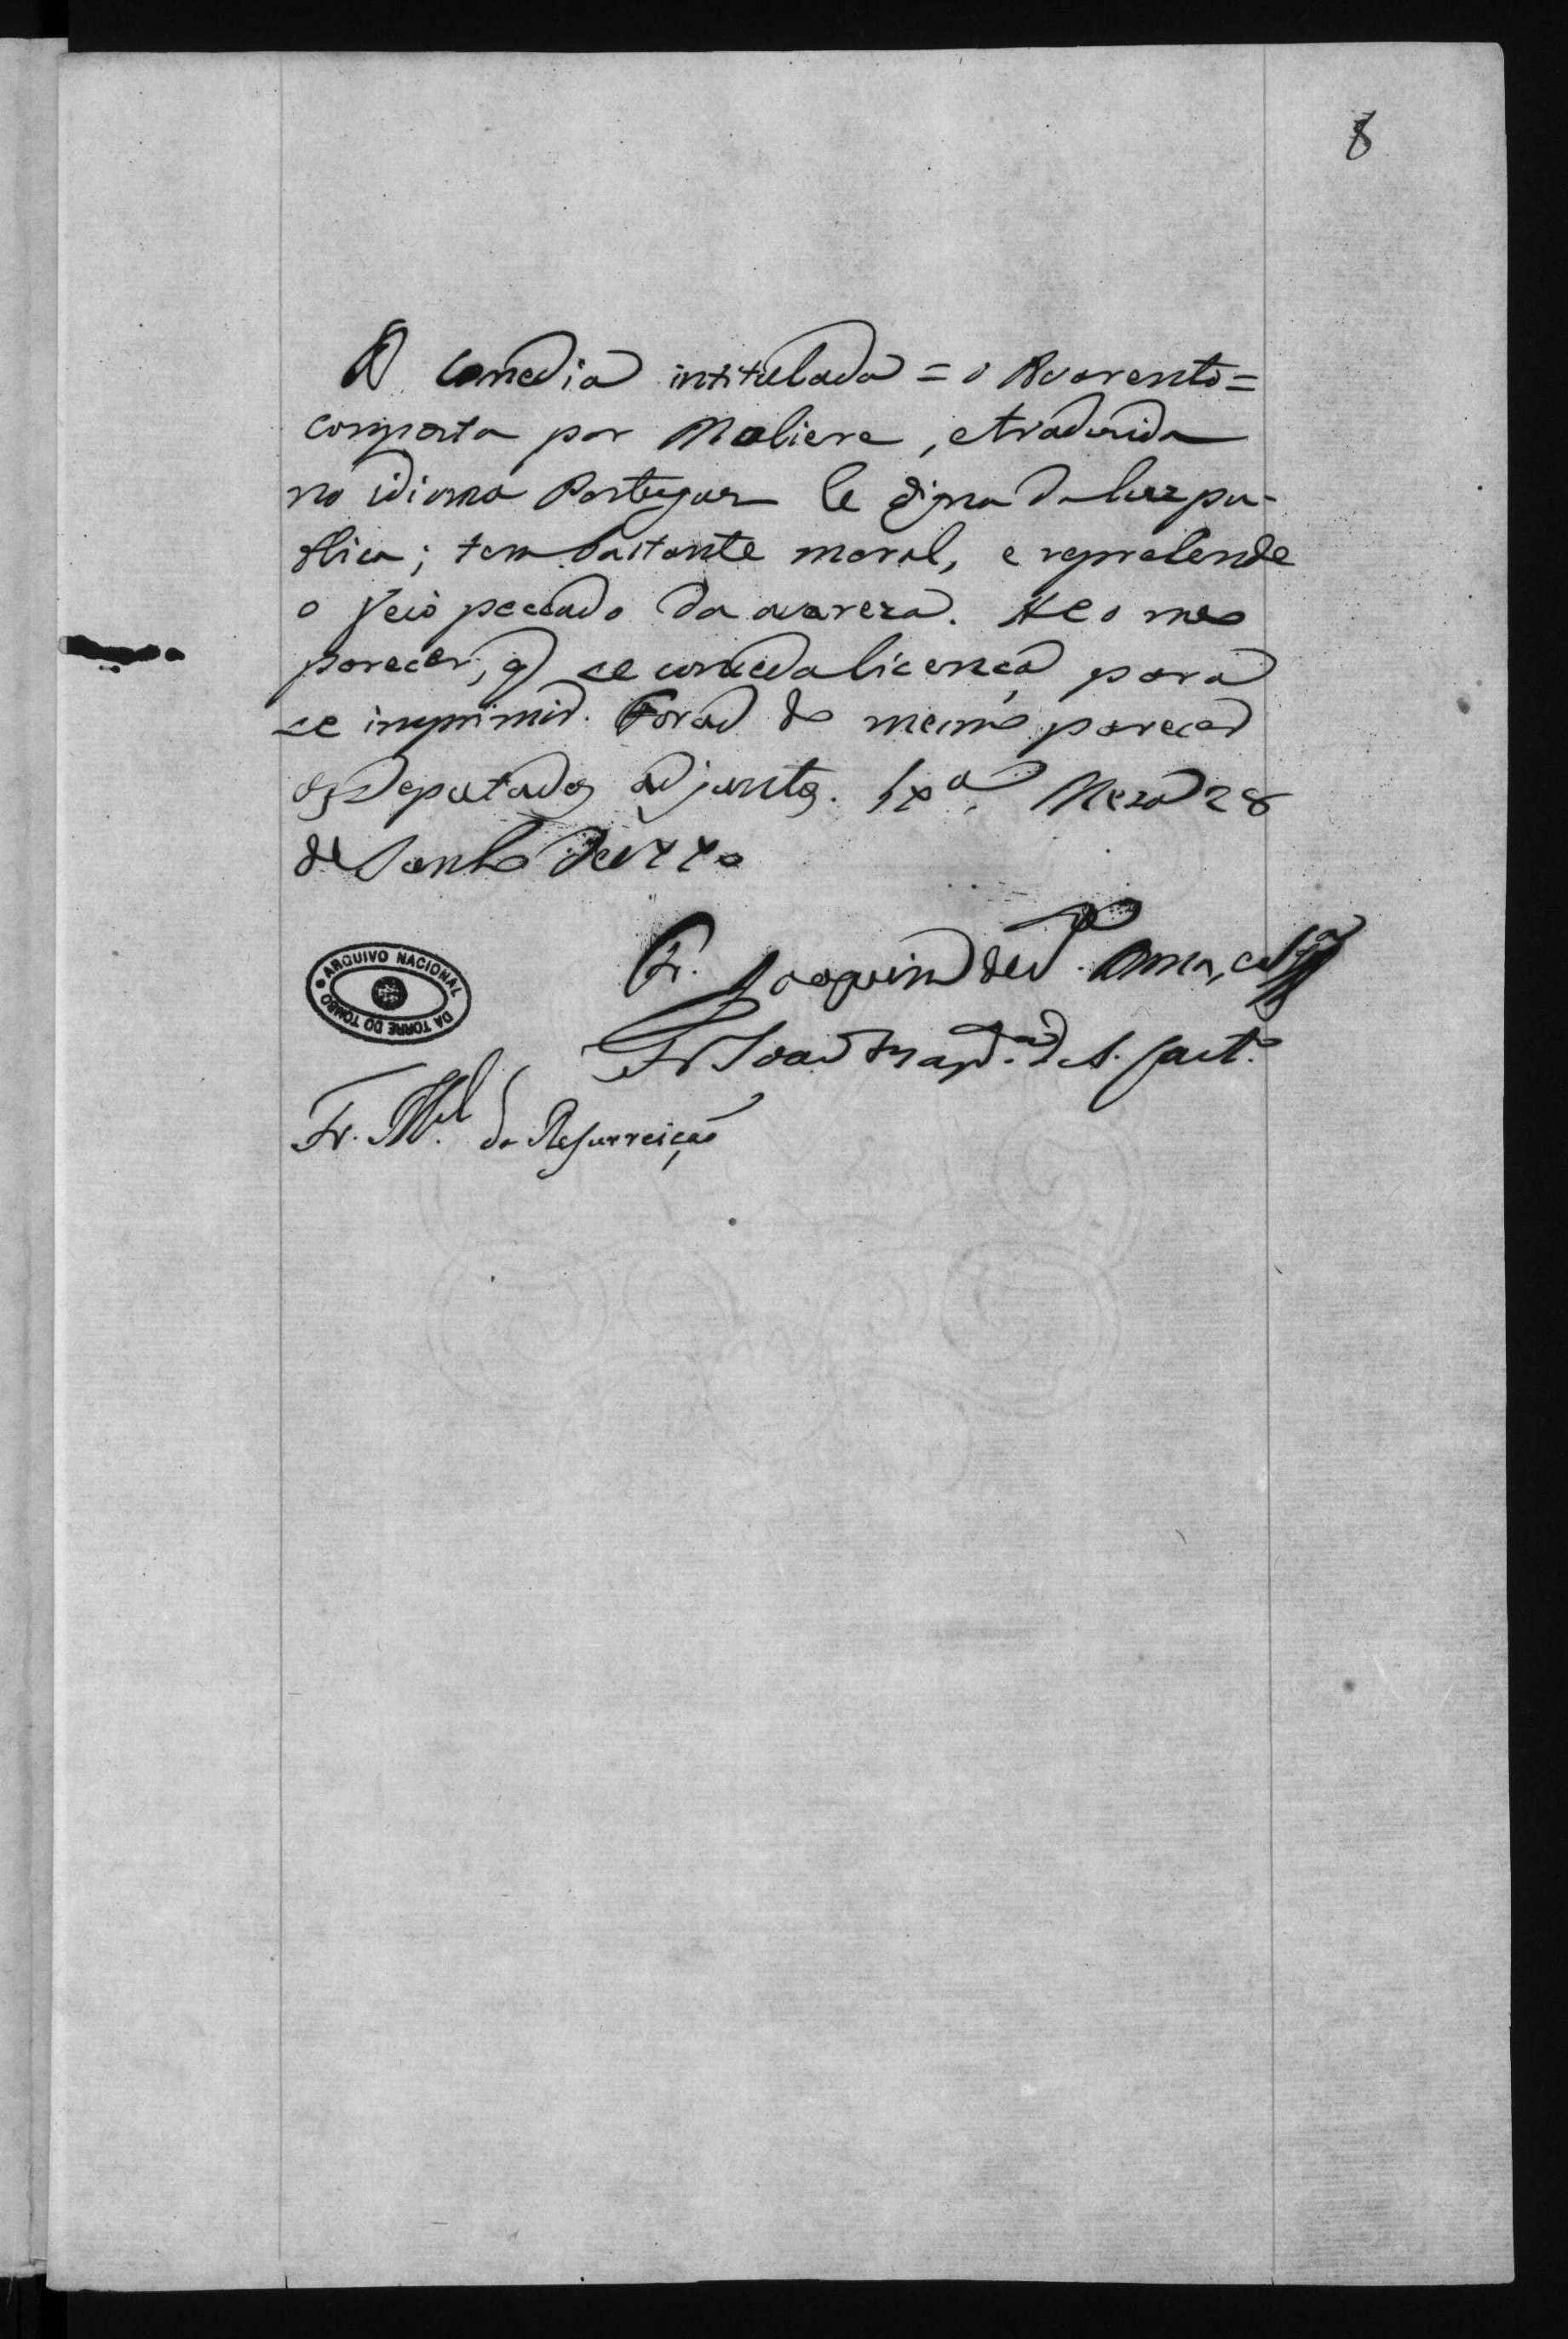 8
A Comedia intitulada = o Avarento =
composta por Moliere, e traduzida
no idioma Portuguez he digna da luz pu-
blica; tem bastante moral, e reprehende
o feio peccado da avareza. He o meo
parecer, q se conceda licença para
se imprimir. Forao do mesmo parecer
os Deputados adjuntos. Lxa. Meza 28
de Junho de 1770
Fr. Joaquim de S. Anna, e Sa
Fr. Joao Bapta. de S. Caet.o
Fr. Mel. da Resurreiçao
ARQUIVO NACIONAL
DA TORRE DO TOMBO